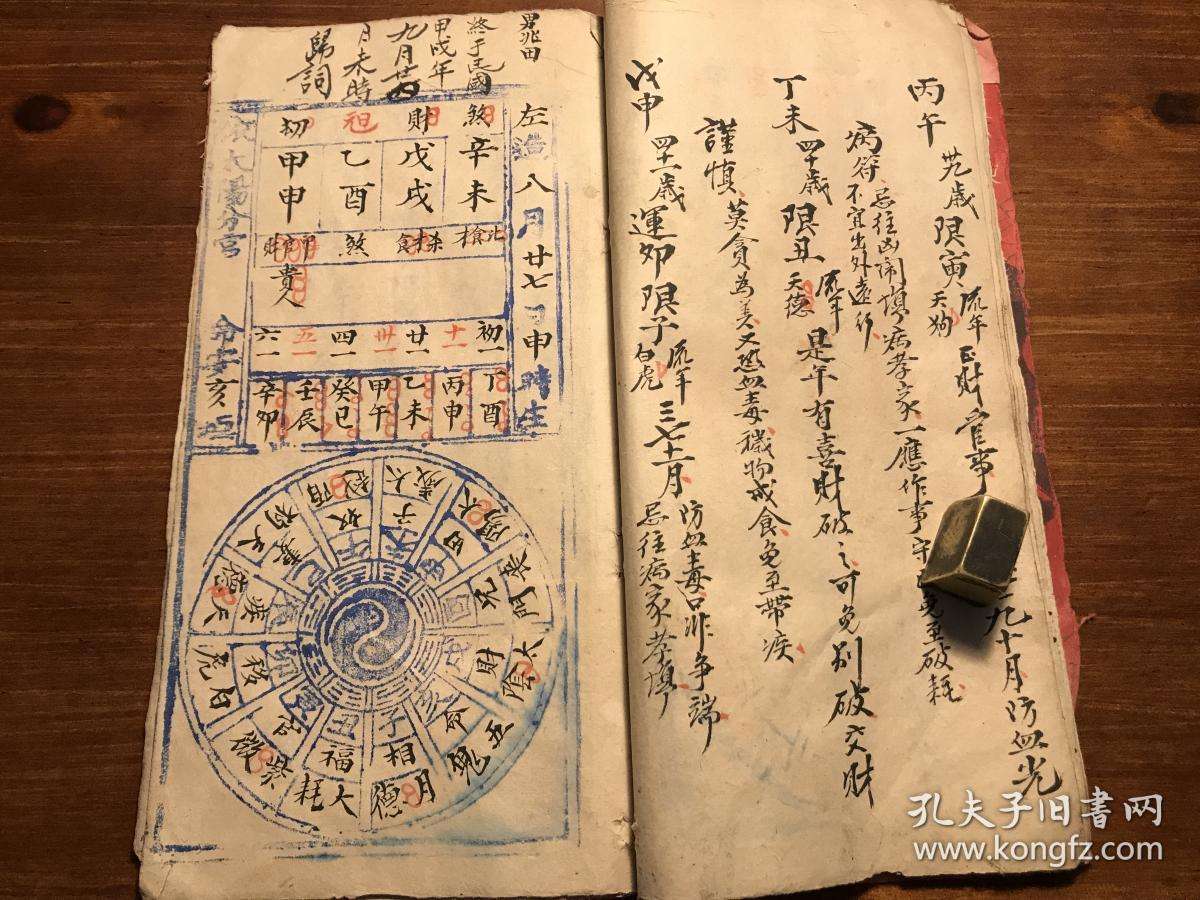 丙午 卅九歲 限寅 流年 天狗 正財官事
九十月防血光
病符 忌往凶鬧墳病孝家一應作事守
不宜出外遠行 免至破耗
丁未 四十歲 限丑 流年 天德 是年有喜財破之可免剋破交財
謹慎莫貪為美又愁血毒穢物戒食免至帶疾
戊申 四十一歲 運卯 限子 流年 白虎 三七十一月 防血毒口非爭端
忌往病家孝墳
終于民國
甲戌年
九月廿
月未時
歸詞
左造八月廿七日申時生
煞 財 祖 初
辛未 戊戌 乙酉 甲申
煞
貴人
初一 十一 廿一 卅一 四一 五一 六一
丁酉 丙申 乙未 甲午 癸巳 壬辰 辛卯
太陽分宮 命主亥
太歲 子
太陽 田
喪門 兄
太陰 財
五鬼 命
月德 相
大耗 福
官
白虎 移
天德 疾
奴
孔夫子旧书网
www.kongfz.com